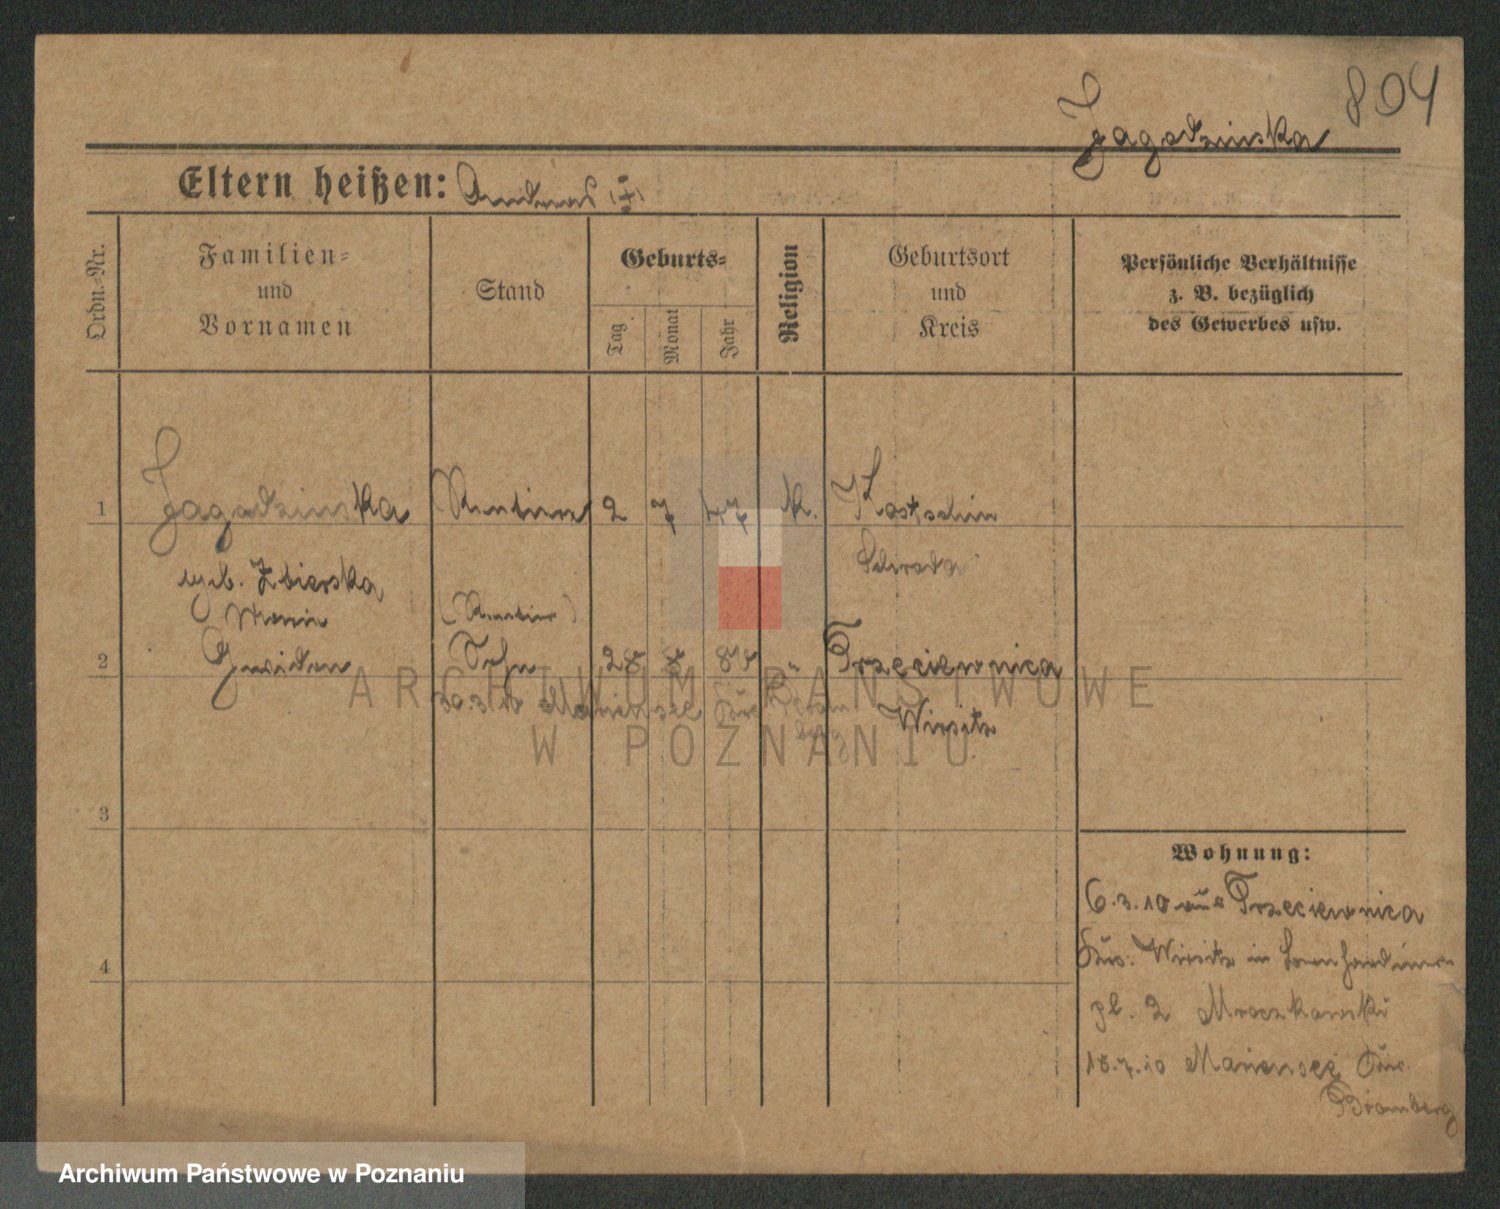 804
Jagodzinska
Eltern heißen: Andreas (†)
Ordn.-Nr.
Familien=
und
Vornamen
Stand
Geburts=
Tag
Monat
Jahr
Religion
Geburtsort
und
Kreis
Persönliche Verhältnisse
z. B. bezüglich
des Gewerbes usw.
1 Jagodzinska Rentiere 2 7 47 k. Kostschin
geb. Zbierska Schroda
Maria (Rentier)
2 Gwidon Sohn 28 8 " Trzeciewnica
Mariensee Kr. Bromberg Wirsitz
3
4
Wohnung:
6.3.10 aus Trzeciewnica
Kr. Wirsitz in Bernhardiner
pl. 2 Mroczkowski
18.7.10 Mariensee Kr.
Bromberg
ARCHIWUM PAŃSTWOWE
W POZNANIU
Archiwum Państwowe w Poznaniu